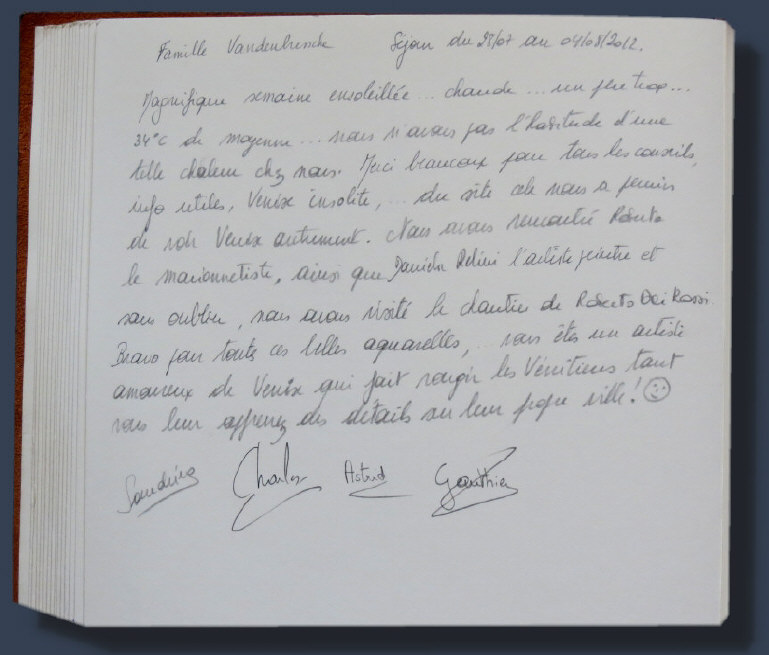 Famille Vandenbussche Séjour du 28/07 au 04/08/2012.
Magnifique semaine ensoleillée... chaude... un peu trop...
34°C de moyenne... nous n'avons pas l'habitude d'une
telle chaleur chez nous. Merci beaucoup pour tous les conseils,
info utiles, Venise insolite,... du site cela nous a permis
de voir Venise autrement. Nous avons rencontré Roberto
le marionnetiste, ainsi que l'artiste peintre et
sans oublier, nous avons visité le chantier de Roberto Dei Rossi
Bravo pour toutes ces belles aquarelles,... vous êtes un artiste
amoureux de Venise qui fait rougir les Vénitiens tant
vous leur apprenez des détails sur leur propre ville! ☺
Sandrine Charles Astrid Gauthier